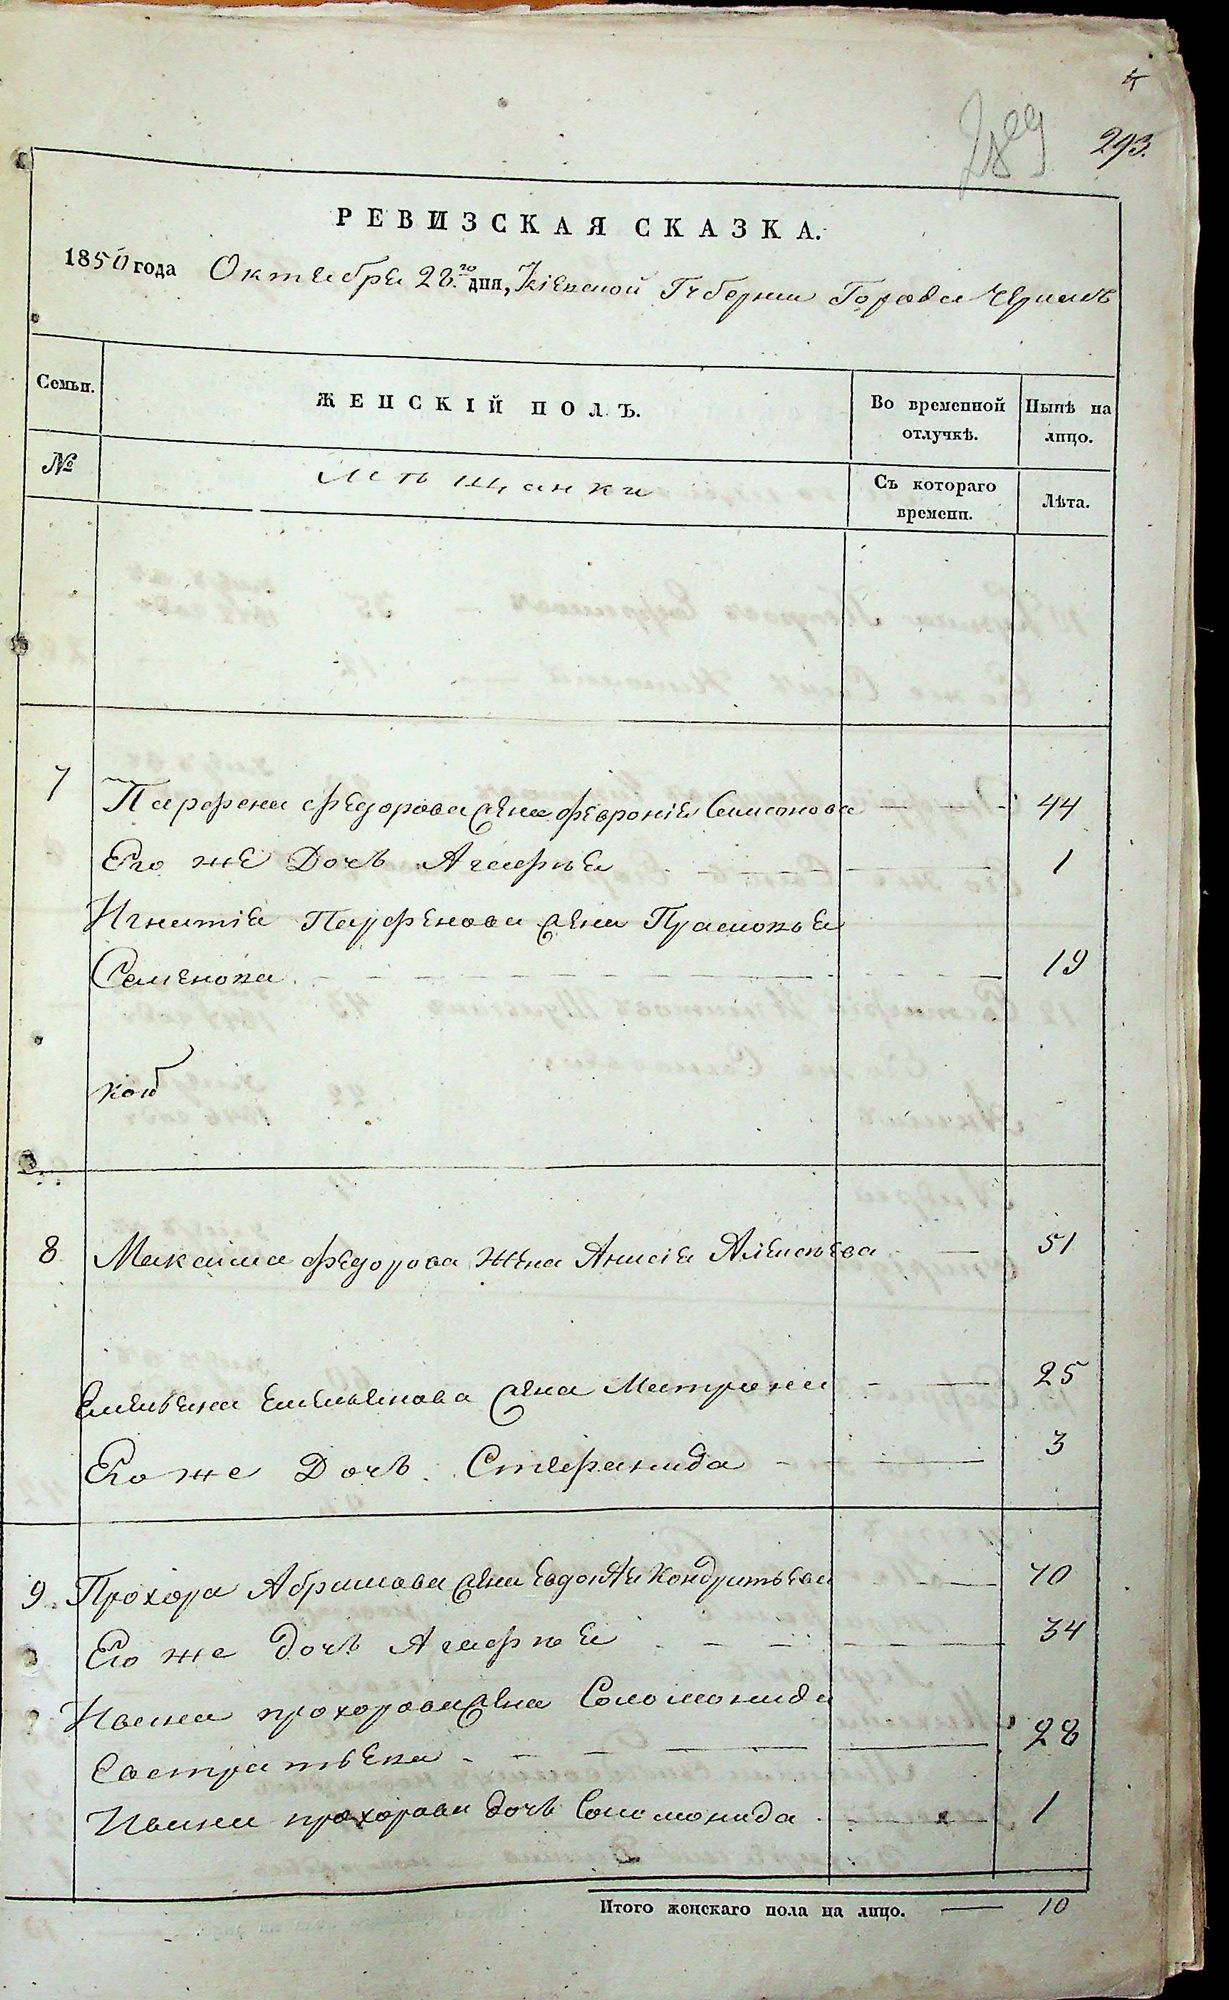 4
293.
РЕВИЗСКАЯ СКАЗКА.
1850 года Октября 28.го дня, Кіевской Губерніи Города
Семьи.
ЖЕНСКІЙ ПОЛЪ.
Во временной отлучкѣ.
Нынѣ на лицо.
№
Мѣщанки
Съ котораго времени.
Лѣта.
7 Парфена Федорова жена Февронія Симонова 44
Его же Дочь Агафья 1
Игнатія Парфенова жена Прасковья
Семенова 19
8 Максима Федорова жена Анисія Алексѣева 51
Емельяна Емельянова жена Матрона 25
Его же Дочь Стефанида 3
9. Прохора Абрамова жена Евдокія Кондратьева 70
Его же дочь Агафья 34
Ивана прохорова жена Соломонида
Евстратьева 28
Ивана прохорова дочь Соломонида 1
Итого женскаго пола на лицо. 10